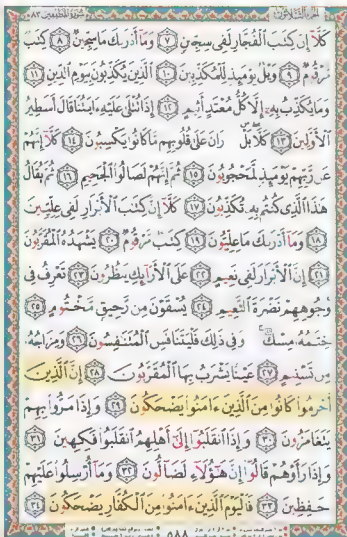 الجزء الثلاثون سورة المطففين ٨٣
كَلَّا إِنَّ كِتَٰبَ الْفُجَّارِ لَفِى سِجِّينٍ ٧ وَمَا أَدْرَىٰكَ مَا سِجِّينٌ ٨ كِتَٰبٌ
مَّرْقُومٌ ٩ وَيْلٌ يَوْمَئِذٍ لِّلْمُكَذِّبِينَ ١٠ الَّذِينَ يُكَذِّبُونَ بِيَوْمِ الدِّينِ ١١
وَمَا يُكَذِّبُ بِهِ إِلَّا كُلُّ مُعْتَدٍ أَثِيمٍ ١٢ إِذَا تُتْلَىٰ عَلَيْهِ ءَايَٰتُنَا قَالَ أَسَٰطِيرُ
الْأَوَّلِينَ ١٣ كَلَّا بَلْ رَانَ عَلَىٰ قُلُوبِهِم مَّا كَانُوا يَكْسِبُونَ ١٤ كَلَّا إِنَّهُمْ
عَن رَّبِّهِمْ يَوْمَئِذٍ لَّمَحْجُوبُونَ ١٥ ثُمَّ إِنَّهُمْ لَصَالُوا الْجَحِيمِ ١٦ ثُمَّ يُقَالُ
هَٰذَا الَّذِى كُنتُم بِهِ تُكَذِّبُونَ ١٧ كَلَّا إِنَّ كِتَٰبَ الْأَبْرَارِ لَفِى عِلِّيِّينَ
١٨ وَمَا أَدْرَىٰكَ مَا عِلِّيُّونَ ١٩ كِتَٰبٌ مَّرْقُومٌ ٢٠ يَشْهَدُهُ الْمُقَرَّبُونَ
٢١ إِنَّ الْأَبْرَارَ لَفِى نَعِيمٍ ٢٢ عَلَى الْأَرَائِكِ يَنظُرُونَ ٢٣ تَعْرِفُ فِى
وُجُوهِهِمْ نَضْرَةَ النَّعِيمِ ٢٤ يُسْقَوْنَ مِن رَّحِيقٍ مَّخْتُومٍ ٢٥
خِتَٰمُهُ مِسْكٌ وَفِى ذَٰلِكَ فَلْيَتَنَافَسِ الْمُتَنَٰفِسُونَ ٢٦ وَمِزَاجُهُ
مِن تَسْنِيمٍ ٢٧ عَيْنًا يَشْرَبُ بِهَا الْمُقَرَّبُونَ ٢٨ إِنَّ الَّذِينَ
أَجْرَمُوا كَانُوا مِنَ الَّذِينَ ءَامَنُوا يَضْحَكُونَ ٢٩ وَإِذَا مَرُّوا بِهِمْ
يَتَغَامَزُونَ ٣٠ وَإِذَا انقَلَبُوا إِلَىٰ أَهْلِهِمُ انقَلَبُوا فَكِهِينَ ٣١
وَإِذَا رَأَوْهُمْ قَالُوا إِنَّ هَٰؤُلَاءِ لَضَالُّونَ ٣٢ وَمَا أُرْسِلُوا عَلَيْهِمْ
حَٰفِظِينَ ٣٣ فَالْيَوْمَ الَّذِينَ ءَامَنُوا مِنَ الْكُفَّارِ يَضْحَكُونَ ٣٤
٥٨٨